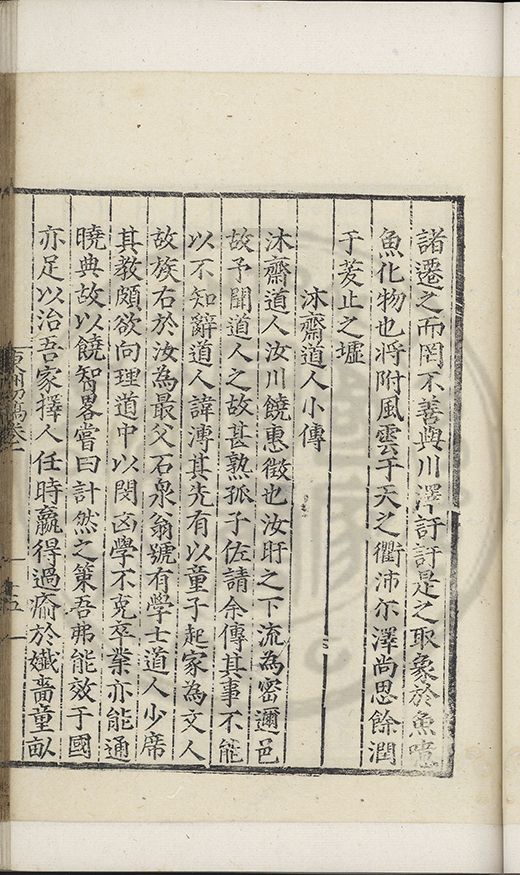 諸遷之而罔不善與川澤訏訏是之取象於魚噫
魚化物也將附風雲于天之衢沛尓澤尚思餘潤
于菱止之墟
沐齋道人小傳
沐齋道人汝川饒惠徵也汝盱之下流為密邇邑
故予聞道人之故甚熟孤子佐請余傳其事不能
以不知辭道人諱溥其先有以童子起家為文人
故族右於汝為最父石泉翁號有學士道人少席
其教頗欲向理道中以閔凶學不克卒業亦能通
曉典故以饒智畧嘗曰計然之策吾弗能效于國
亦足以治吾家擇人任時贏得過瘉於孅嗇童𠭇
東州初稿卷一
五